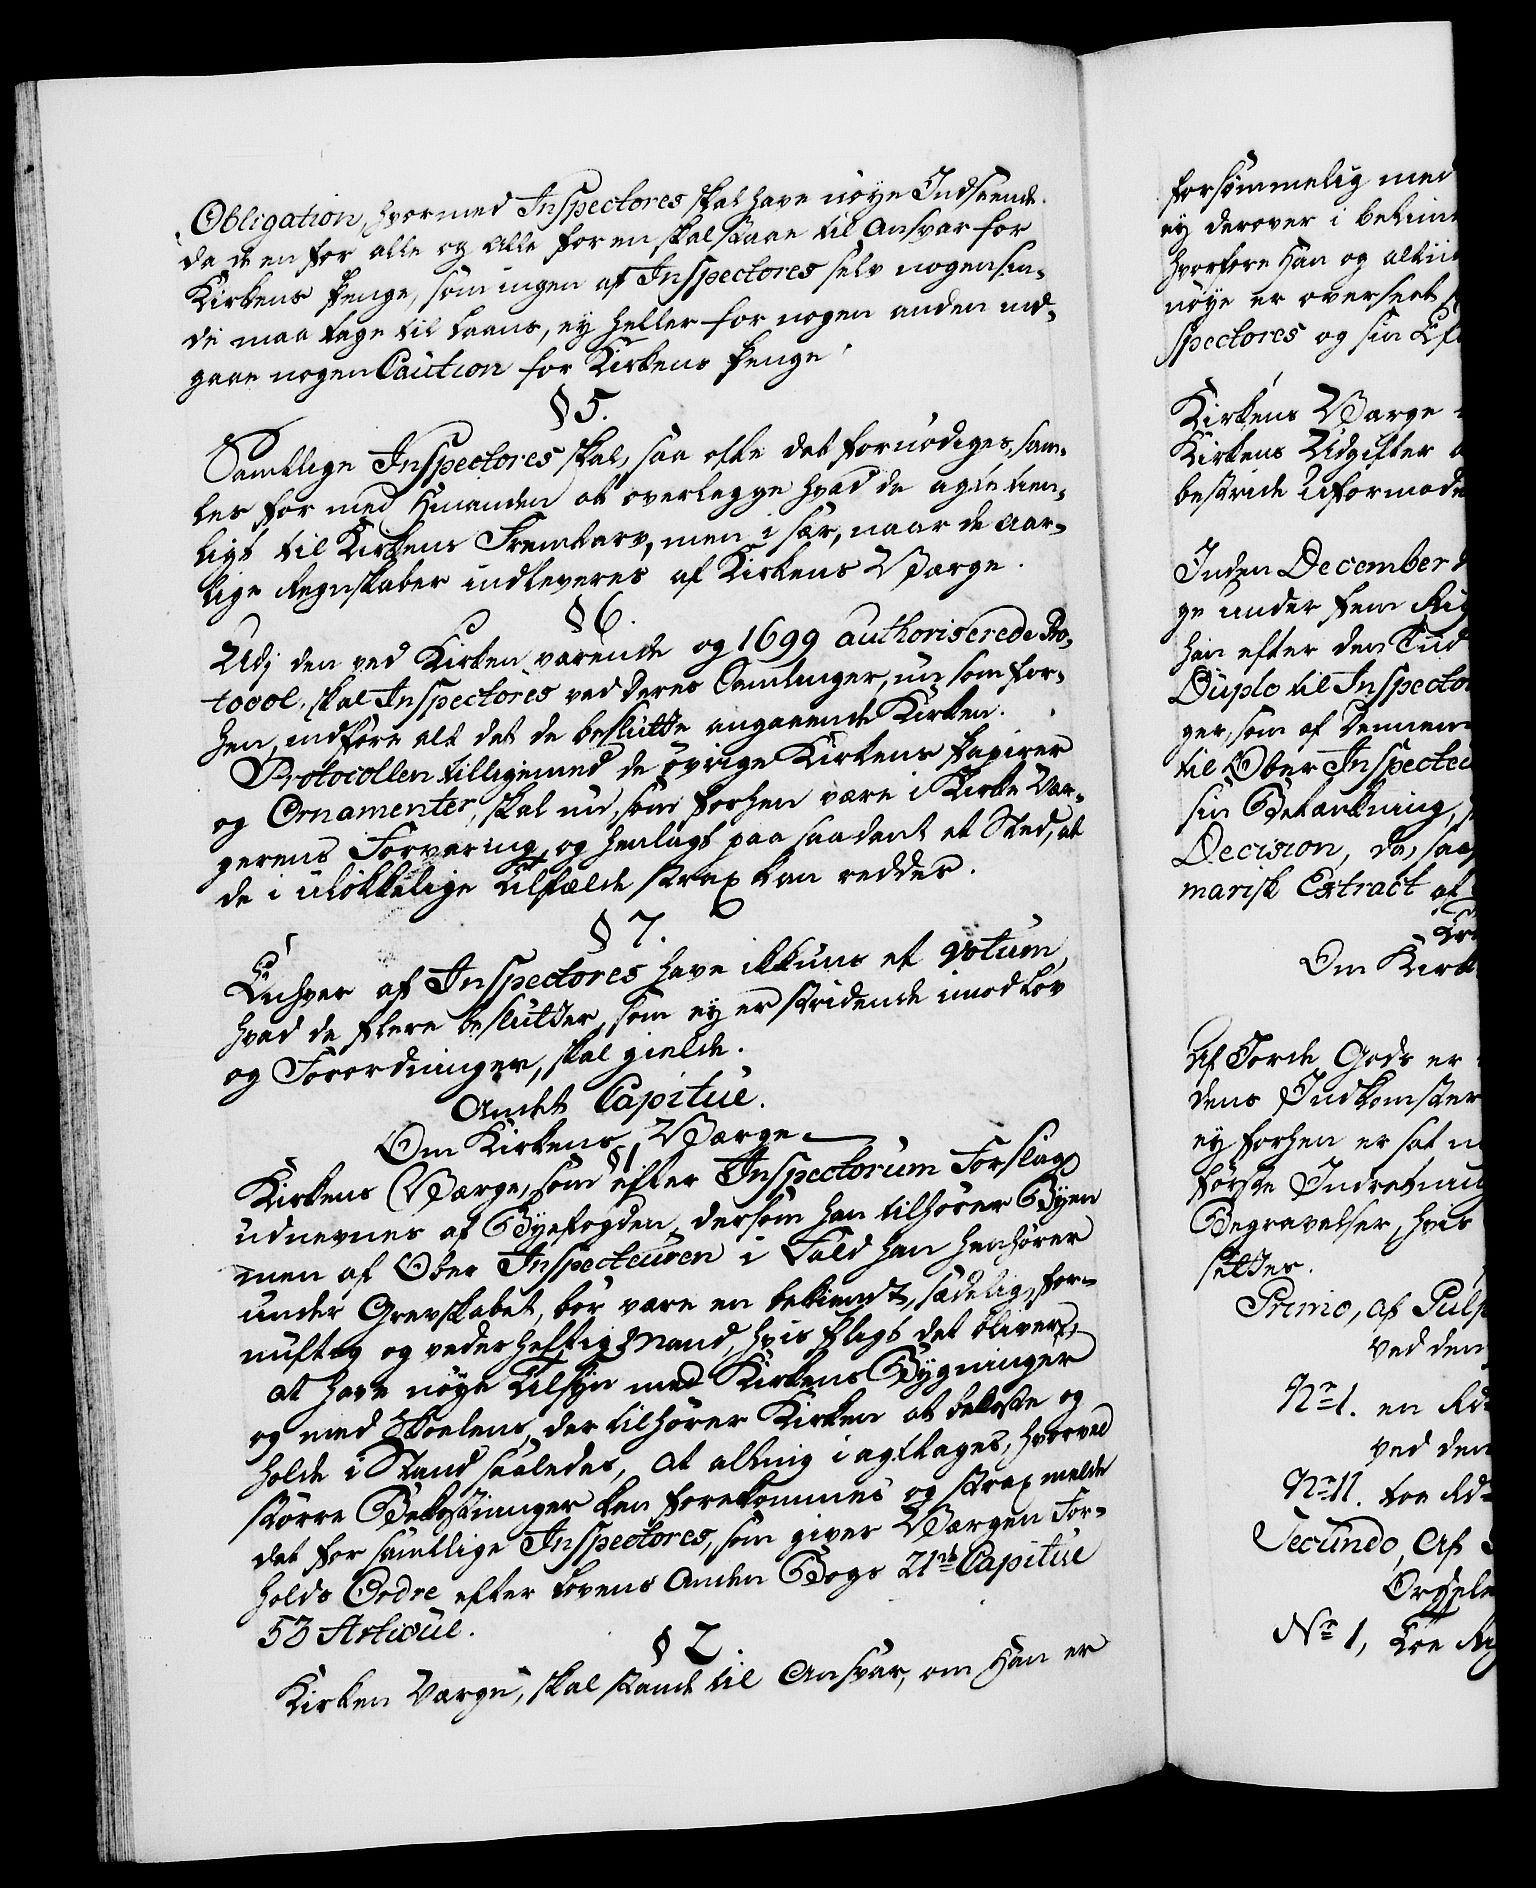 Obligation, hvormed Inspectores skal have nöye Indseende.
da de en for alle og alle for en skal staae til Ansvar for
Kirkens Penge, som ingen af Inspectores selv nogensin-
de maa tage til Laans, ey heller for nogen anden ind-
gaae nogen Caution for Kirkens Penge.
§ 5.
Samtlige Inspectores skal, saa ofte det fornödiges, sam-
les for med hinanden at overlegge hvad de agte tien-
ligt til Kirkens Fremtarv, men i sær, naar de aar-
lige Regnskaber indleveres af Kirkens Værge.
§ 6.
Udj den ved Kirken værende og 1699 authoriserede Pro-
tocol, skal Inspectores ved deres Samlinger, nu som for-
hen, indföre alt det de beslutte angaaende Kirken.
Protocollen tilligemed de övrige Kirkens Papirer
og Ornamenter, skal nu, som forhen være i Kirke Vær-
gerens Forvaring, og henlagt paa saadant et Sted, at
de i ulökkelige Tilfælde strax kan reddes.
§ 7.
Enhver af Inspectores have ikkuns et Votum,
hvad de flere beslutter, som ey er stridende imod Lov
og Forordninger, skal gielde.
Andet Capitul.
Om Kirkens Værge.
§ 1
Kirkens Værge, som efter Inspectorum Forslag
udnevnes af Byefogden, dersom han tilhörer Byen
men af Ober Inspecteuren i Fald han henhörer
under Grevskabet, bör være en bekiendt, sædelig, for-
nuftig og vederheftig Mand, hvis Pligt det bliver,
at have nöye Tilsyn med Kirkens Bygninger
og med Skoelens, der tilhörer Kirken at bekoste og
holde i Stand saaledes, at alting i agttages, hvorved
större Bekostninger kan forekommes og strax melde
det for samtlige Inspectores, som giver Værgen For-
holds Ordre efter Lovens Anden Bogs 21de Capitul
53 Articul.
§ 2.
Kirken Værge, skal staae til Ansvar, om Han er
forsömmelig med
ey derover i
hvorfore Han og
nöye er overseet
spectores og sin
Kirkens Værge
Kirkens Udgifter
bestride
Inden December
ge under fem
han efter den Tiid
Duplo til
ger, som af
til Ober
sin Betænkning,
Decision, da
marisk Extract af
Om
Af Jorde Gods er
dens Indkomster
ey forhen er sat
förste
Begravelser, hvis
settes.
Primo, af
ved den
No 1. en
ved den
No II. toe
Secundo, Af
No 1, toe